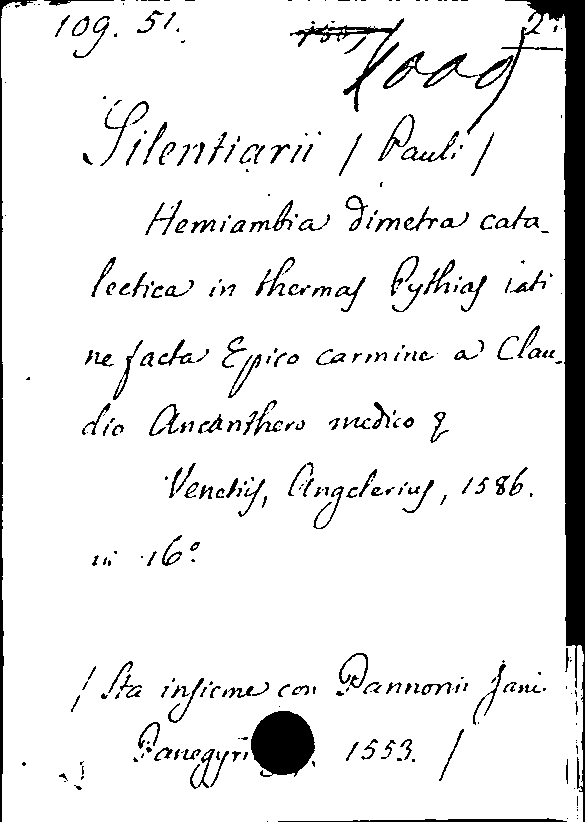 109. 51. 2.
1009
Silentiarii / Pauli /
Hemiambia dimetra cata-
lectica in thermas Pythias lati
ne facta Epico carmine a Clau-
dio Ancanthero medico &
Venetijs, Angelerius, 1586.
in 16°
/ Sta insieme con Pannonii Jani
1553. /